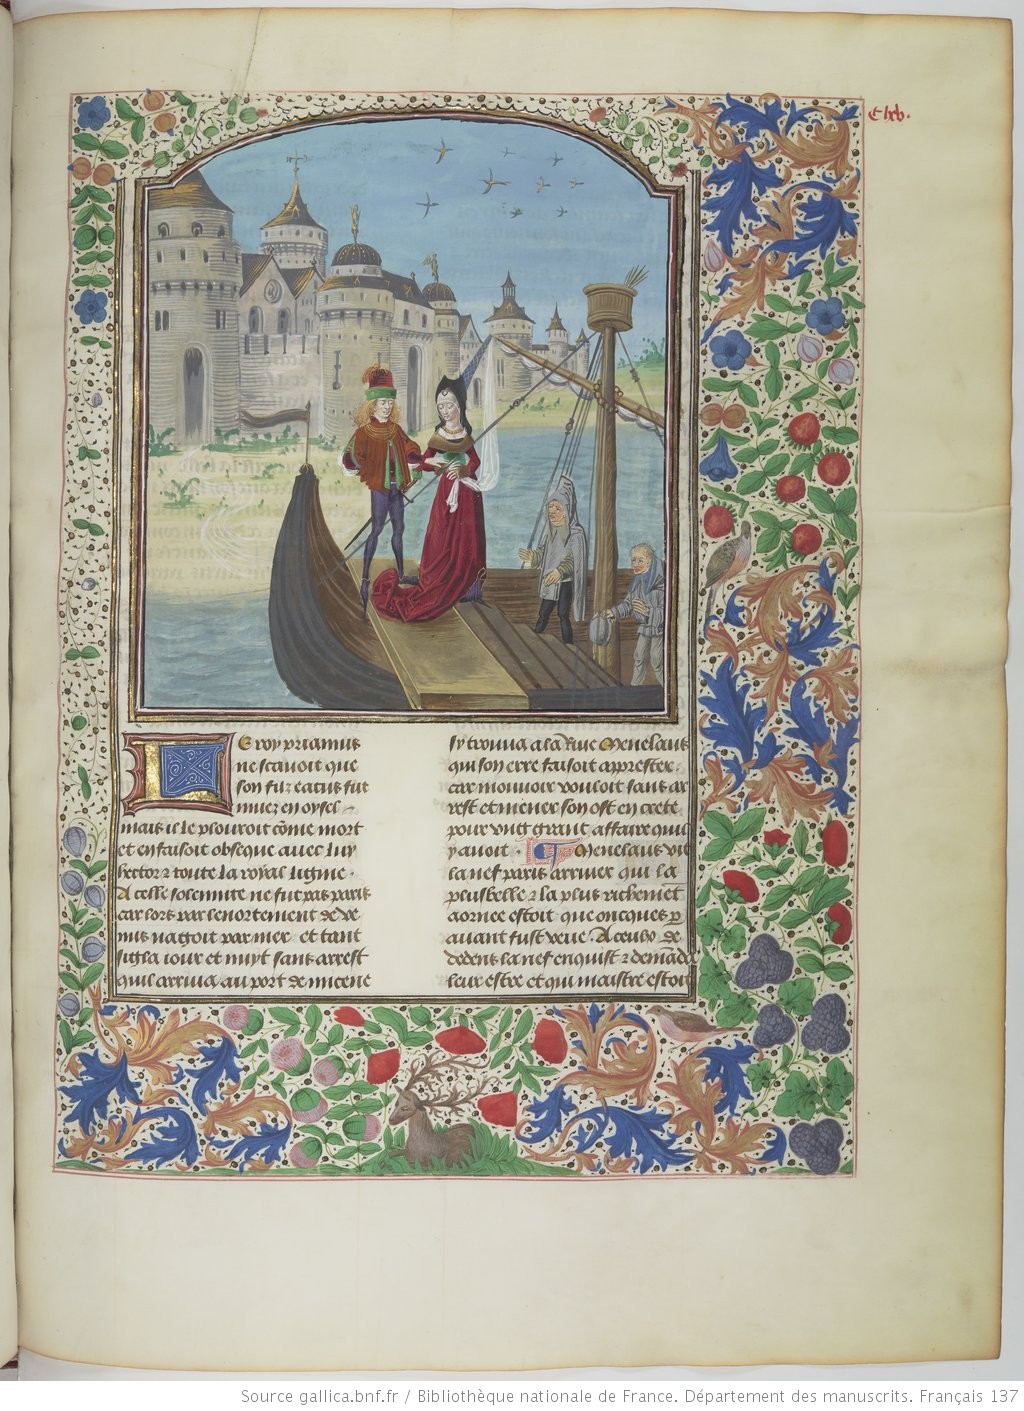 C lxv.
Le roy priamus
ne scavoit que
son filz eacus fut
muez en oysel
mais il le plouroit cõme mort
et en faisoit obseque avec luy
hector ⁊ toute la royal lignie.
A celle solennite ne fut pas paris
car lors par lenortement de ve-
nus nagoit par mer. et tant
sigla iour et nuyt sans arrest
quil arriva au port de micene
sy trouva a la rive Menelaus
qui son erre faisoit apprester
car mouvoir vouloit sans ar
rest et mener son ost en crete
pour ung grant affaire quil
y avoit. Menelaus vit
la nef paris arriver qui la
plus belle ⁊ la plus richemẽt
aornee estoit que oncques p
avant fust veue. A ceulx de
dedens la nef enquist ⁊ demãda
leur estre et qui maistre estoit
Source gallica.bnf.fr / Bibliothèque nationale de France. Département des manuscrits. Français 137